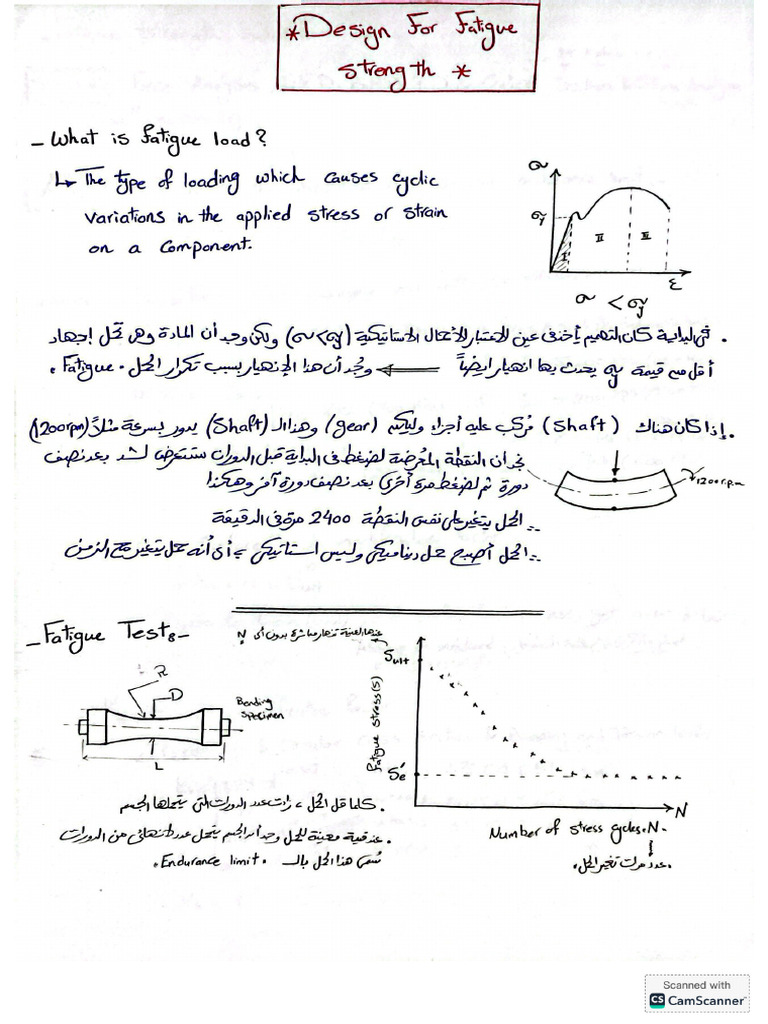 *Design For Fatigue
strength *
- What is fatigue load?
↳ The type of loading which causes cyclic
variations in the applied stress or strain
on a component.
σ
σy
I
II
III
ε
σ < σy
. في البداية كان التصميم يأخذ في عين الاعتبار الأحمال الاستاتيكية (σ<σy) ولكن وجد أن المادة وهي تحمل إجهاد
أقل من قيمة σy يحدث بها انهيار ايضاً ⟸ وجد أن هذا الإنهيار بسبب تكرار الحمل . Fatigue .
. إذا كان هناك (shaft) مُركب عليه أجزاء وليكن (gear) وهذا الـ (Shaft) يدور بسرعة مثلاً (1200rpm)
نجد أن النقطة المعرضة لضغط في البداية قبل الدوران ستتعرض لشد بعد نصف
دورة ثم لضغط مرة أخرى بعد نصف دورة آخر وهكذا
1200r.p.m
∴ الحمل يتغير على نفس النقطة 2400 مرة في الدقيقة
∴ الحمل أصبح حمل ديناميكي وليس استاتيكي ، أي أنه حمل يتغير مع الزمن
- Fatigue Test:-
عندها العينة تنهار مباشرة بدون أي N
Sult
Fatigue stress(S)
Se'
N
Number of stress cycles.N.
. عدد مرات تغير الحمل.
R
D
L
Bending
specimen
. كلما قل الحمل ، زادت عدد الدورات التي يتحملها الجسم
. عند قيمة معينة للحمل وجد أن الجسم يتحمل عدد لانهائي من الدورات
تُسمى هذا الحمل بالـ . Endurance limit .
Scanned with
CS CamScanner